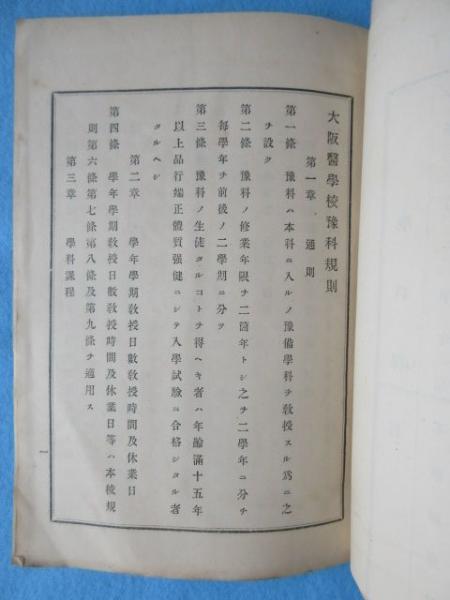 大阪醫學校豫科規則
第一章　通則
第一條　豫科ハ本科ニ入ルノ豫備學科ヲ教授スル爲ニ之
ヲ設ク
第二條　豫科ノ修業年限ヲ二箇年トシ之ヲ二學年ニ分チ
每學年ヲ前後ノ二學期ニ分ツ
第三條　豫科ノ生徒タルコトヲ得ヘキ者ハ年齡滿十五年
以上品行端正體質强健ニシテ入學試驗ニ合格シタル者
タルヘシ
第二章　學年學期敎授日數敎授時間及休業日
第四條　學年學期敎授日數敎授時間及休業日等ハ本校規
則第六條第七條第八條及第九條ヲ適用ス
第三章　學科課程
一